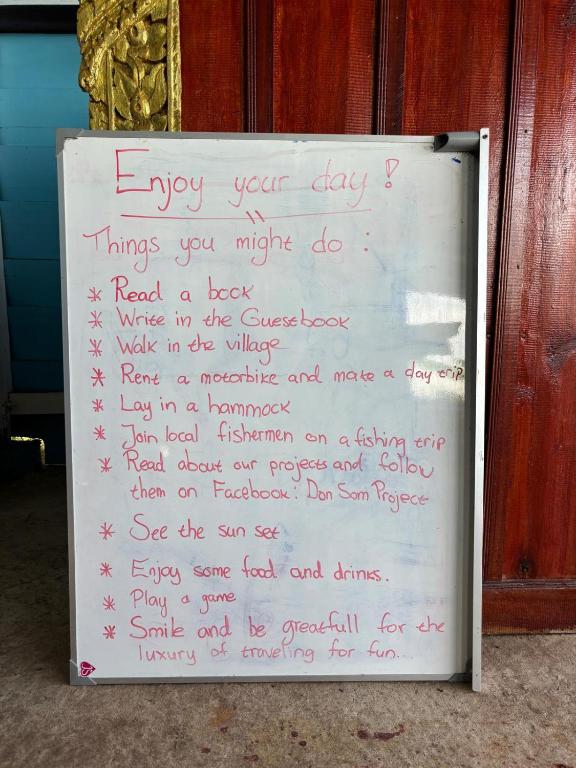 Enjoy your day!
Things you might do :
* Read a book
* Write in the Guestbook
* Walk in the village
* Rent a motorbike and make a day trip
* Lay in a hammock
* Join local fishermen on a fishing trip
* Read about our projects and follow
them on Facebook: Don Som Project
* See the sun set
* Enjoy some food and drinks.
* Play a game
* Smile and be greatfull for the
luxury of traveling for fun...